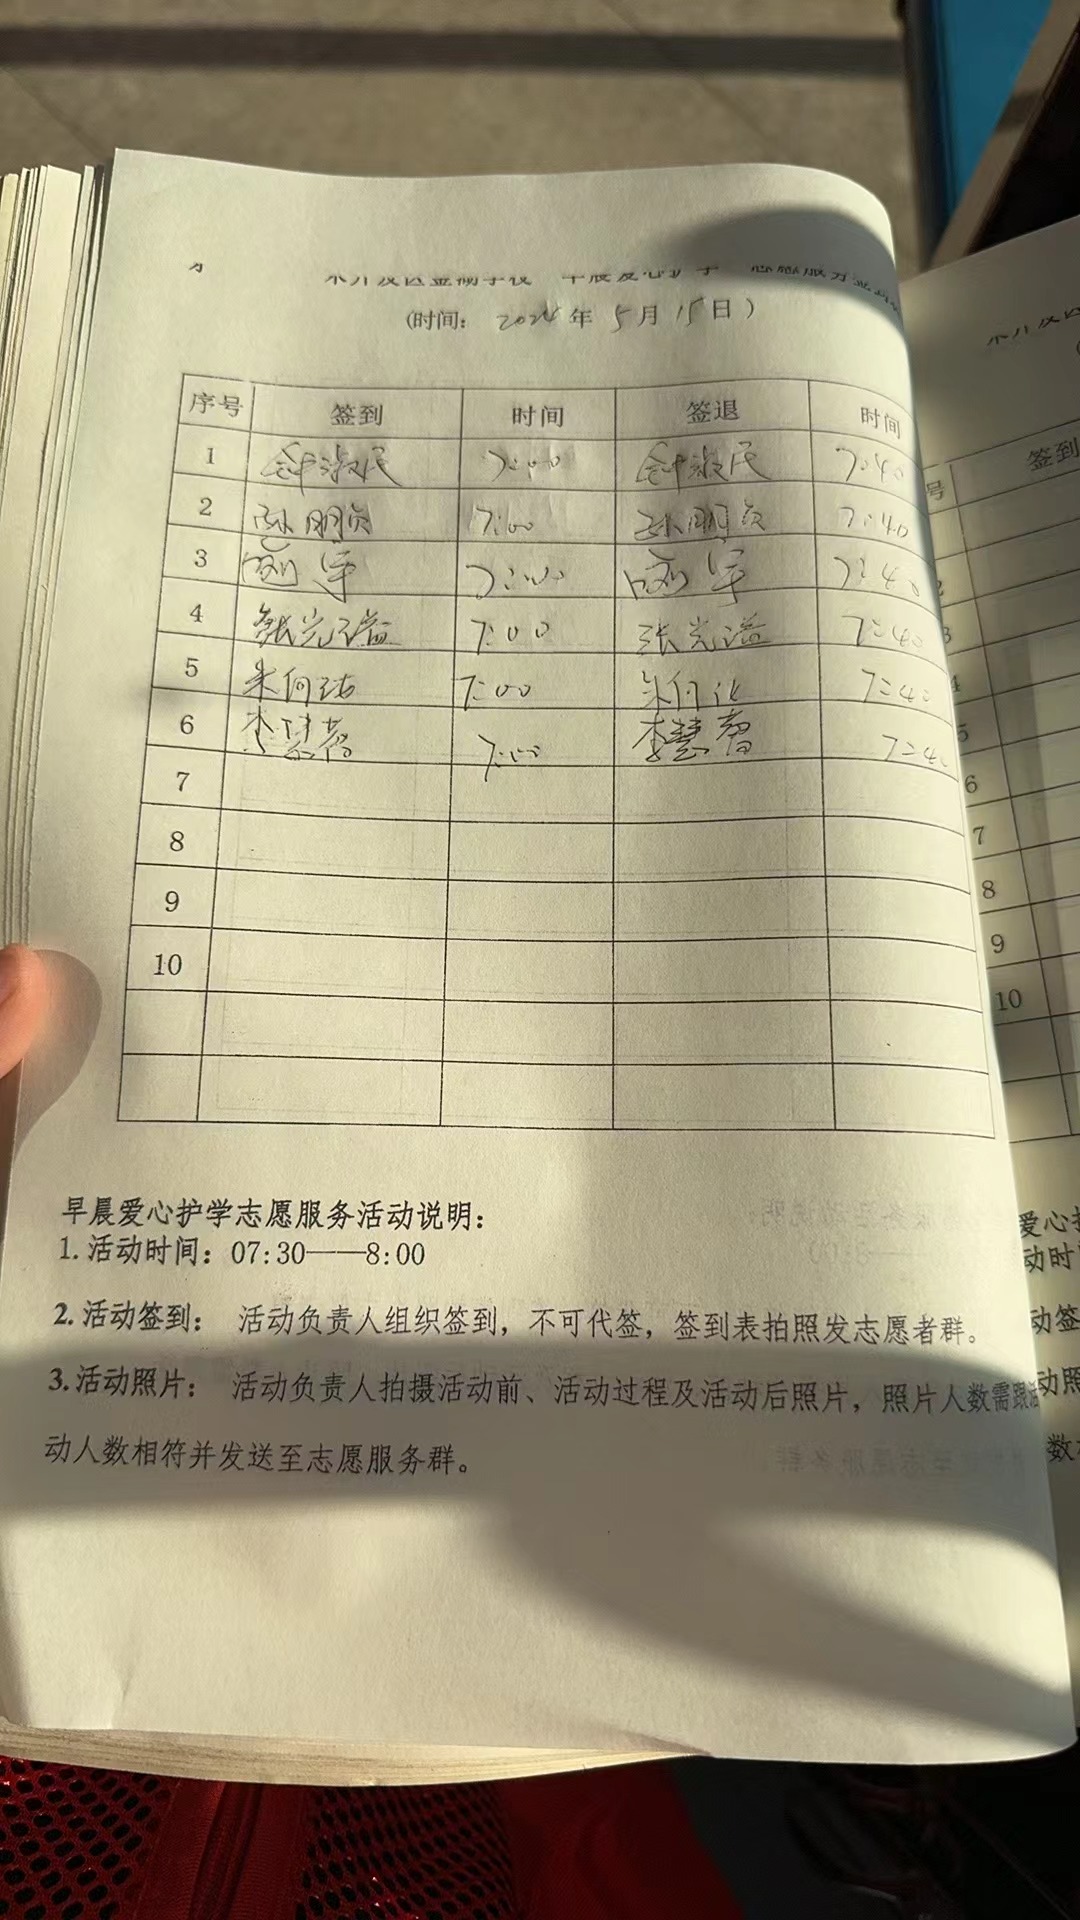 (时间： 2024年 5月 15日)
序号 签到 时间 签退 时间
1 钟淑民 7:00 钟淑民 7:40
2 孙朋贞 7:00 孙朋贞 7:40
3 7:00 7:40
4 张光谥 7:00 张光谥 7:40
5 朱何 7:00 朱何 7:40
6 李慧 7:00 李慧 7:40
7
8
9
10
早晨爱心护学志愿服务活动说明：
1. 活动时间：07:30——8:00
2. 活动签到： 活动负责人组织签到，不可代签，签到表拍照发志愿者群。
3. 活动照片： 活动负责人拍摄活动前、活动过程及活动后照片，照片人数需跟活
动人数相符并发送至志愿服务群。
号 签到
6
7
8
9
10
爱心
动时
动签
动照
数